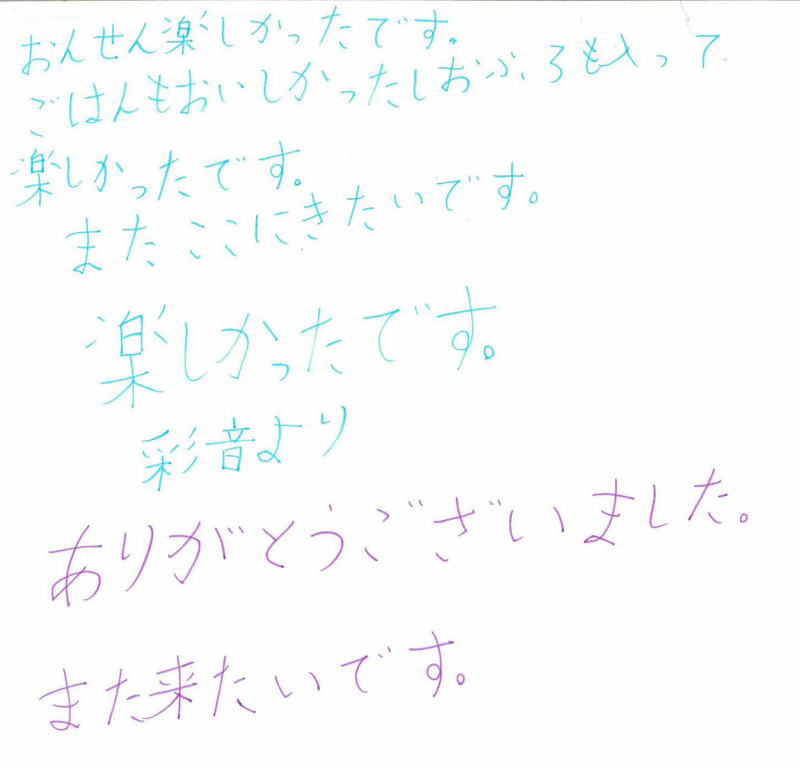 おんせん楽しかったです。
ごはんもおいしかったしおふろも入って
楽しかったです。
またここにきたいです。
楽しかったです。
彩音より
ありがとうございました。
また来たいです。